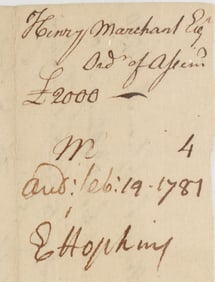 Henry Marchant Esqr
Ordr of Assem
£2000 —
M 4
Aud: Feb: 19 - 1781
E Hopkins